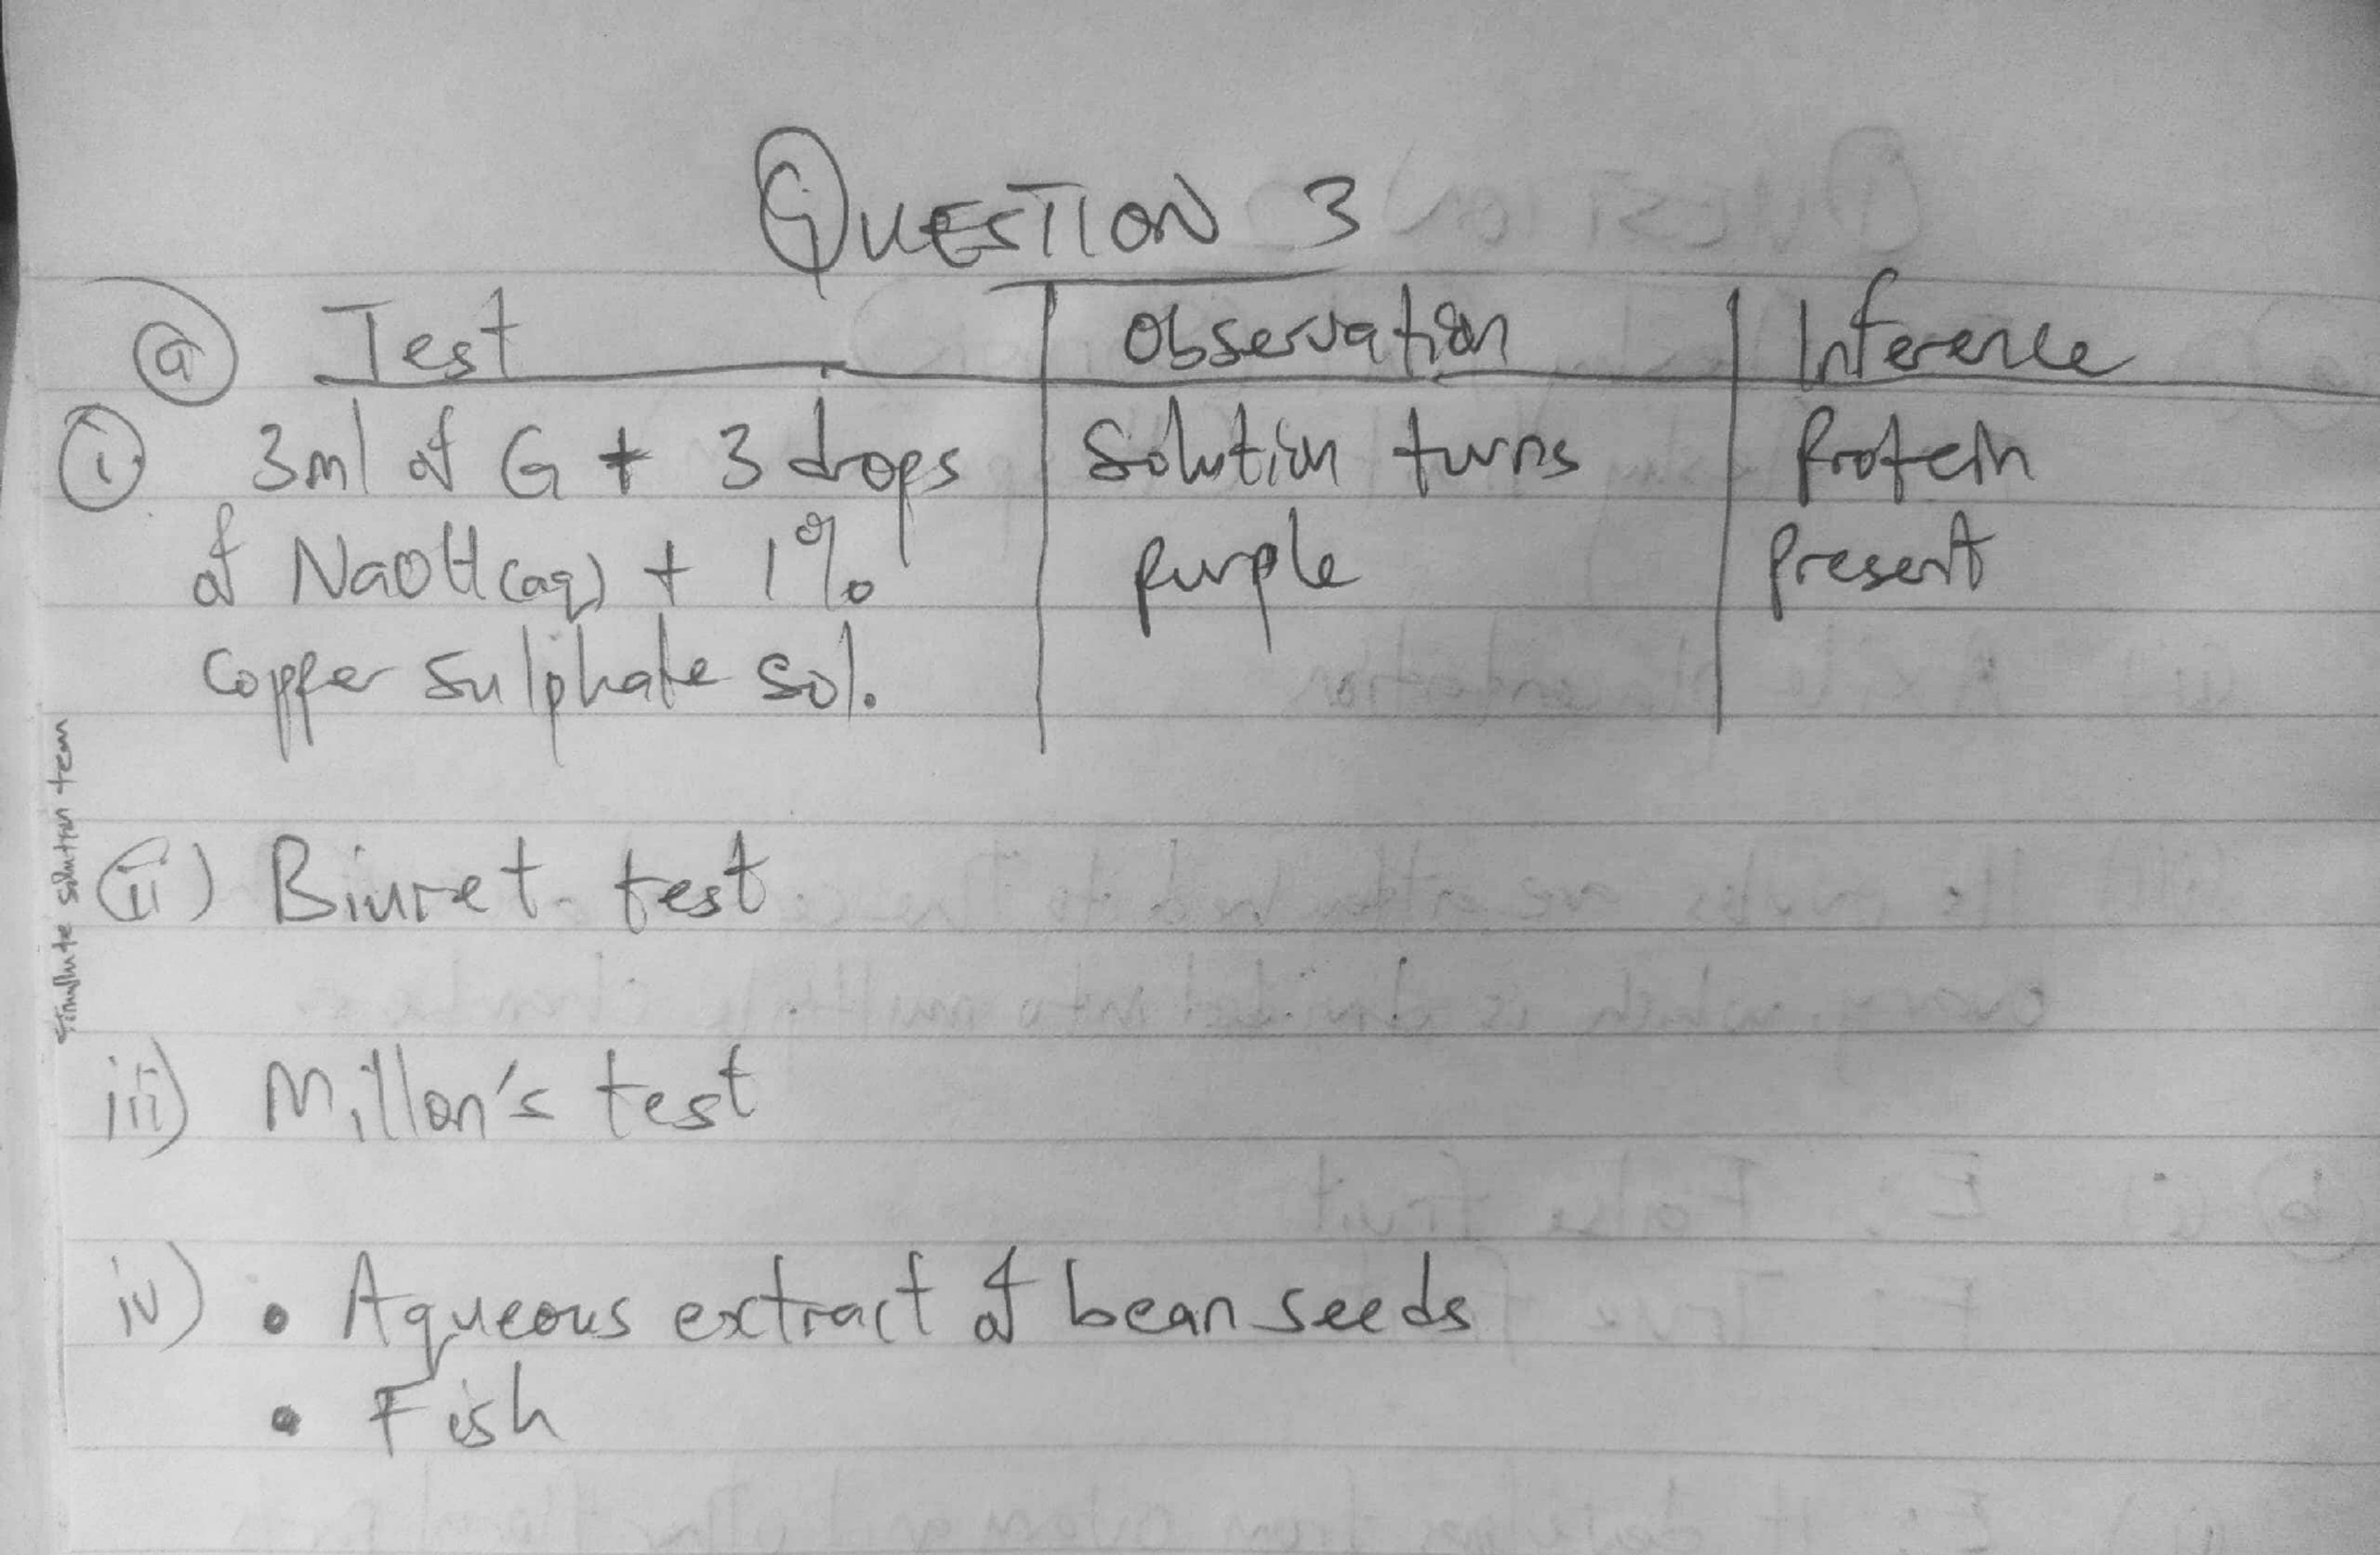 QUESTION 3
(a) Test Observation Inference
(i) 3ml of G + 3 drops Solution turns Protein
of NaOH(aq) + 1% purple present
Copper Sulphate Sol.
(ii) Biuret test
iii) Millon's test
iv) • Aqueous extract of bean seeds
• Fish
solution team